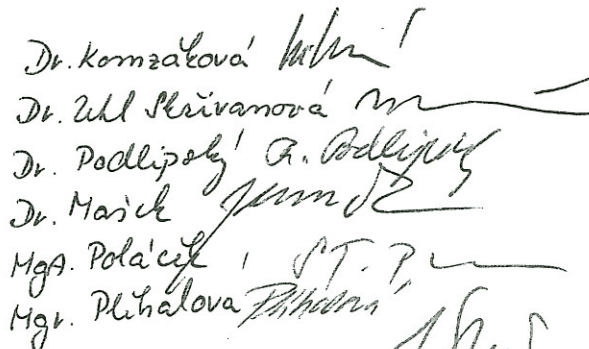 Dr. Komzáková
Dr. Uhl Skřivanová
Dr. Podlipský R. Podlipský
Dr. Mašek
MgA. Poláček, ST. P
Mgr. Plíhalova Plíhalová